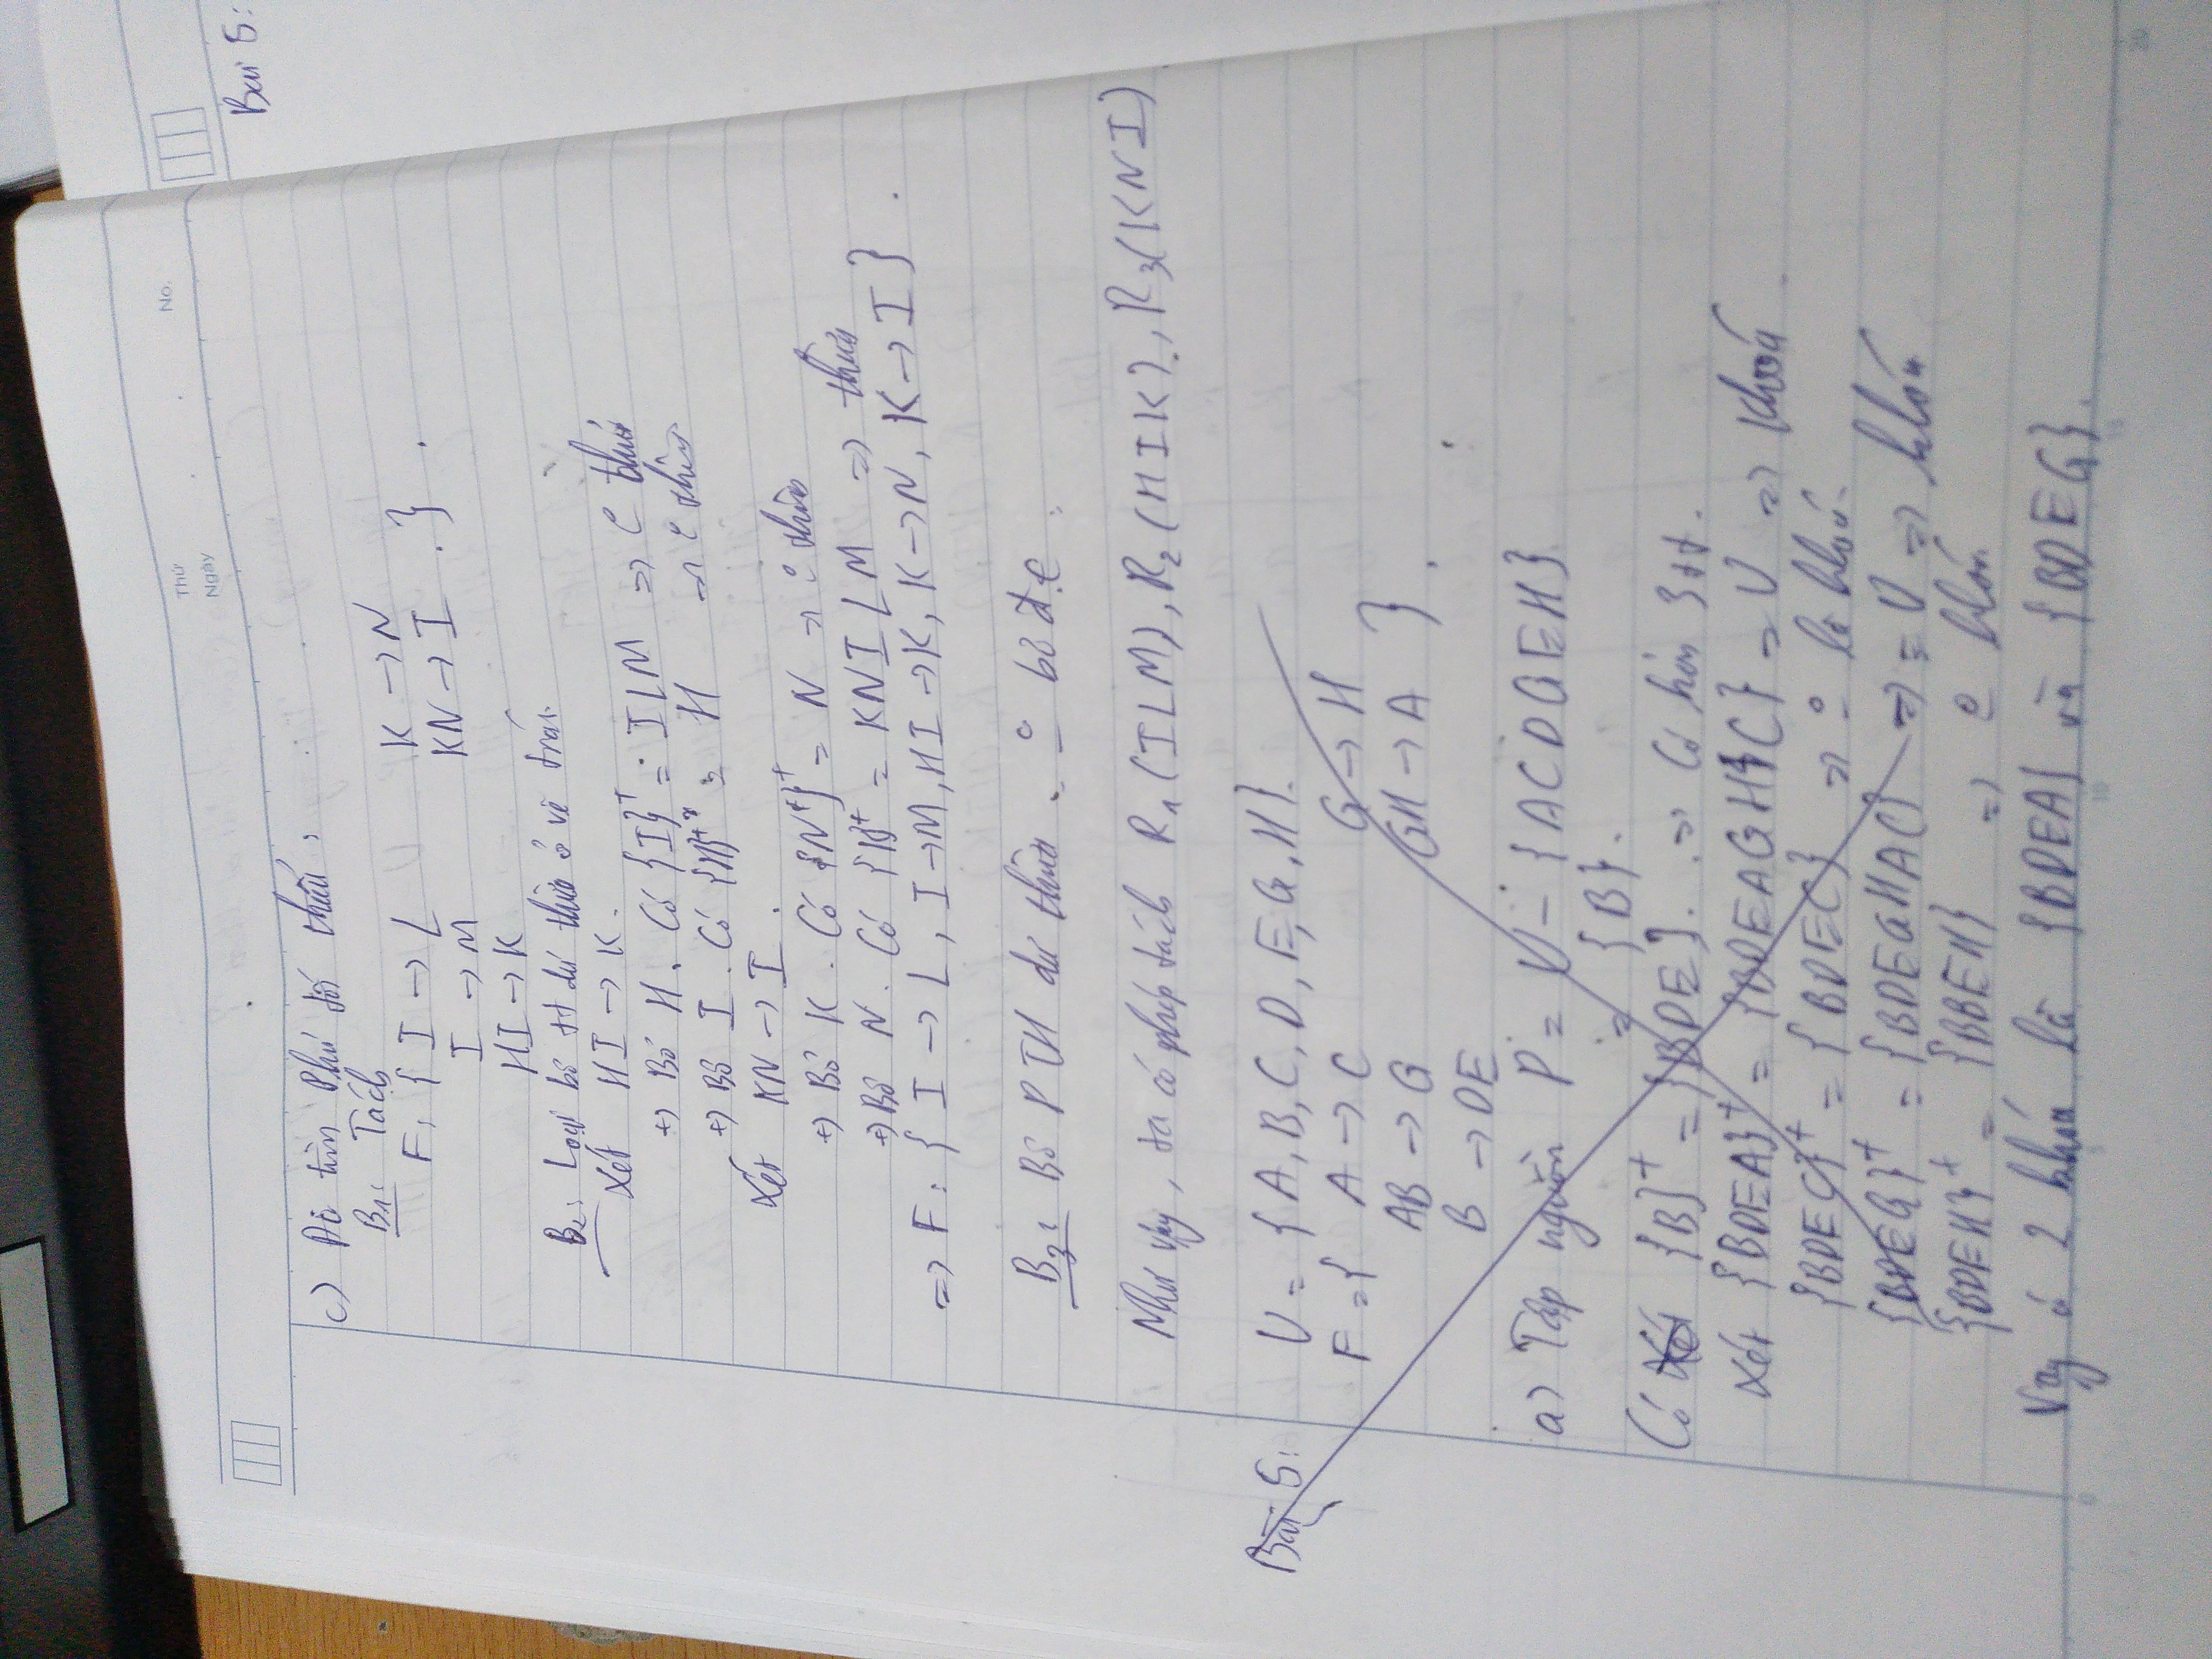 Thứ
Ngày
No.
Bài 5:
c) Đã tìm Phủ tối thiểu:
B1: Tách
F: { I → L K → N
I → M KN → I . }
HI → K
B2: Loại bỏ tt dư thừa ở vế trái.
Xét HI → K.
+) Bỏ H. Có {I}+ = ILM => thừa
+) Bỏ I. Có {H}+ = H => thừa
Xét KN → I .
+) Bỏ K. Có {N+}+ = N => thừa
+) Bỏ N. Có {K}+ = KNILM => thừa
=> F: { I → L, I → M, HI → K, K → N, K → I } .
B3: Bỏ PTH dư thừa. bỏ đc
Như vậy, ta có phép tách R1(ILM), R2(HIK), R3(KNI)
Bài 5: U = {A, B, C, D, E, G, H}.
F = { A → C G → H
AB → G GH → A } .
B → DE
a) Tập nguồn P = U – {ACDGEH}
= {B}.
Có Xét {B}+ = {BDE}. => Có hơn 3tt.
Xét {BDEA}+ = {BDEAGHC} = U => Khoá.
{BDEC}+ = {BDEC} => là khoá.
{BDEG}+ = {BDEGHAC} => = U => khoá
{BDEH}+ = {BBEH} => khoá
Vậy có 2 khoá là {BDEA} và {BDEG}.